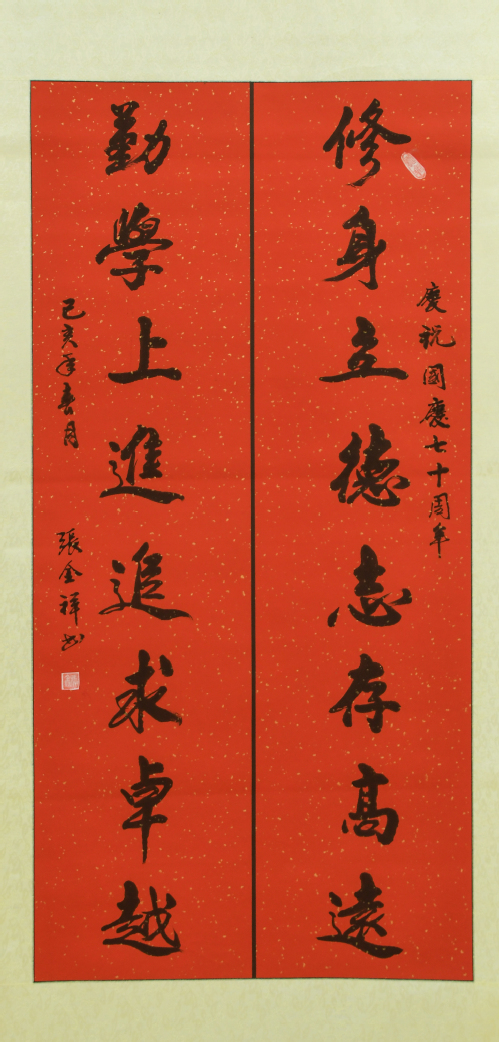 慶祝國慶七十周年
修身立德志存高遠
勤學上進追求卓越
己亥年春月
張金祥書